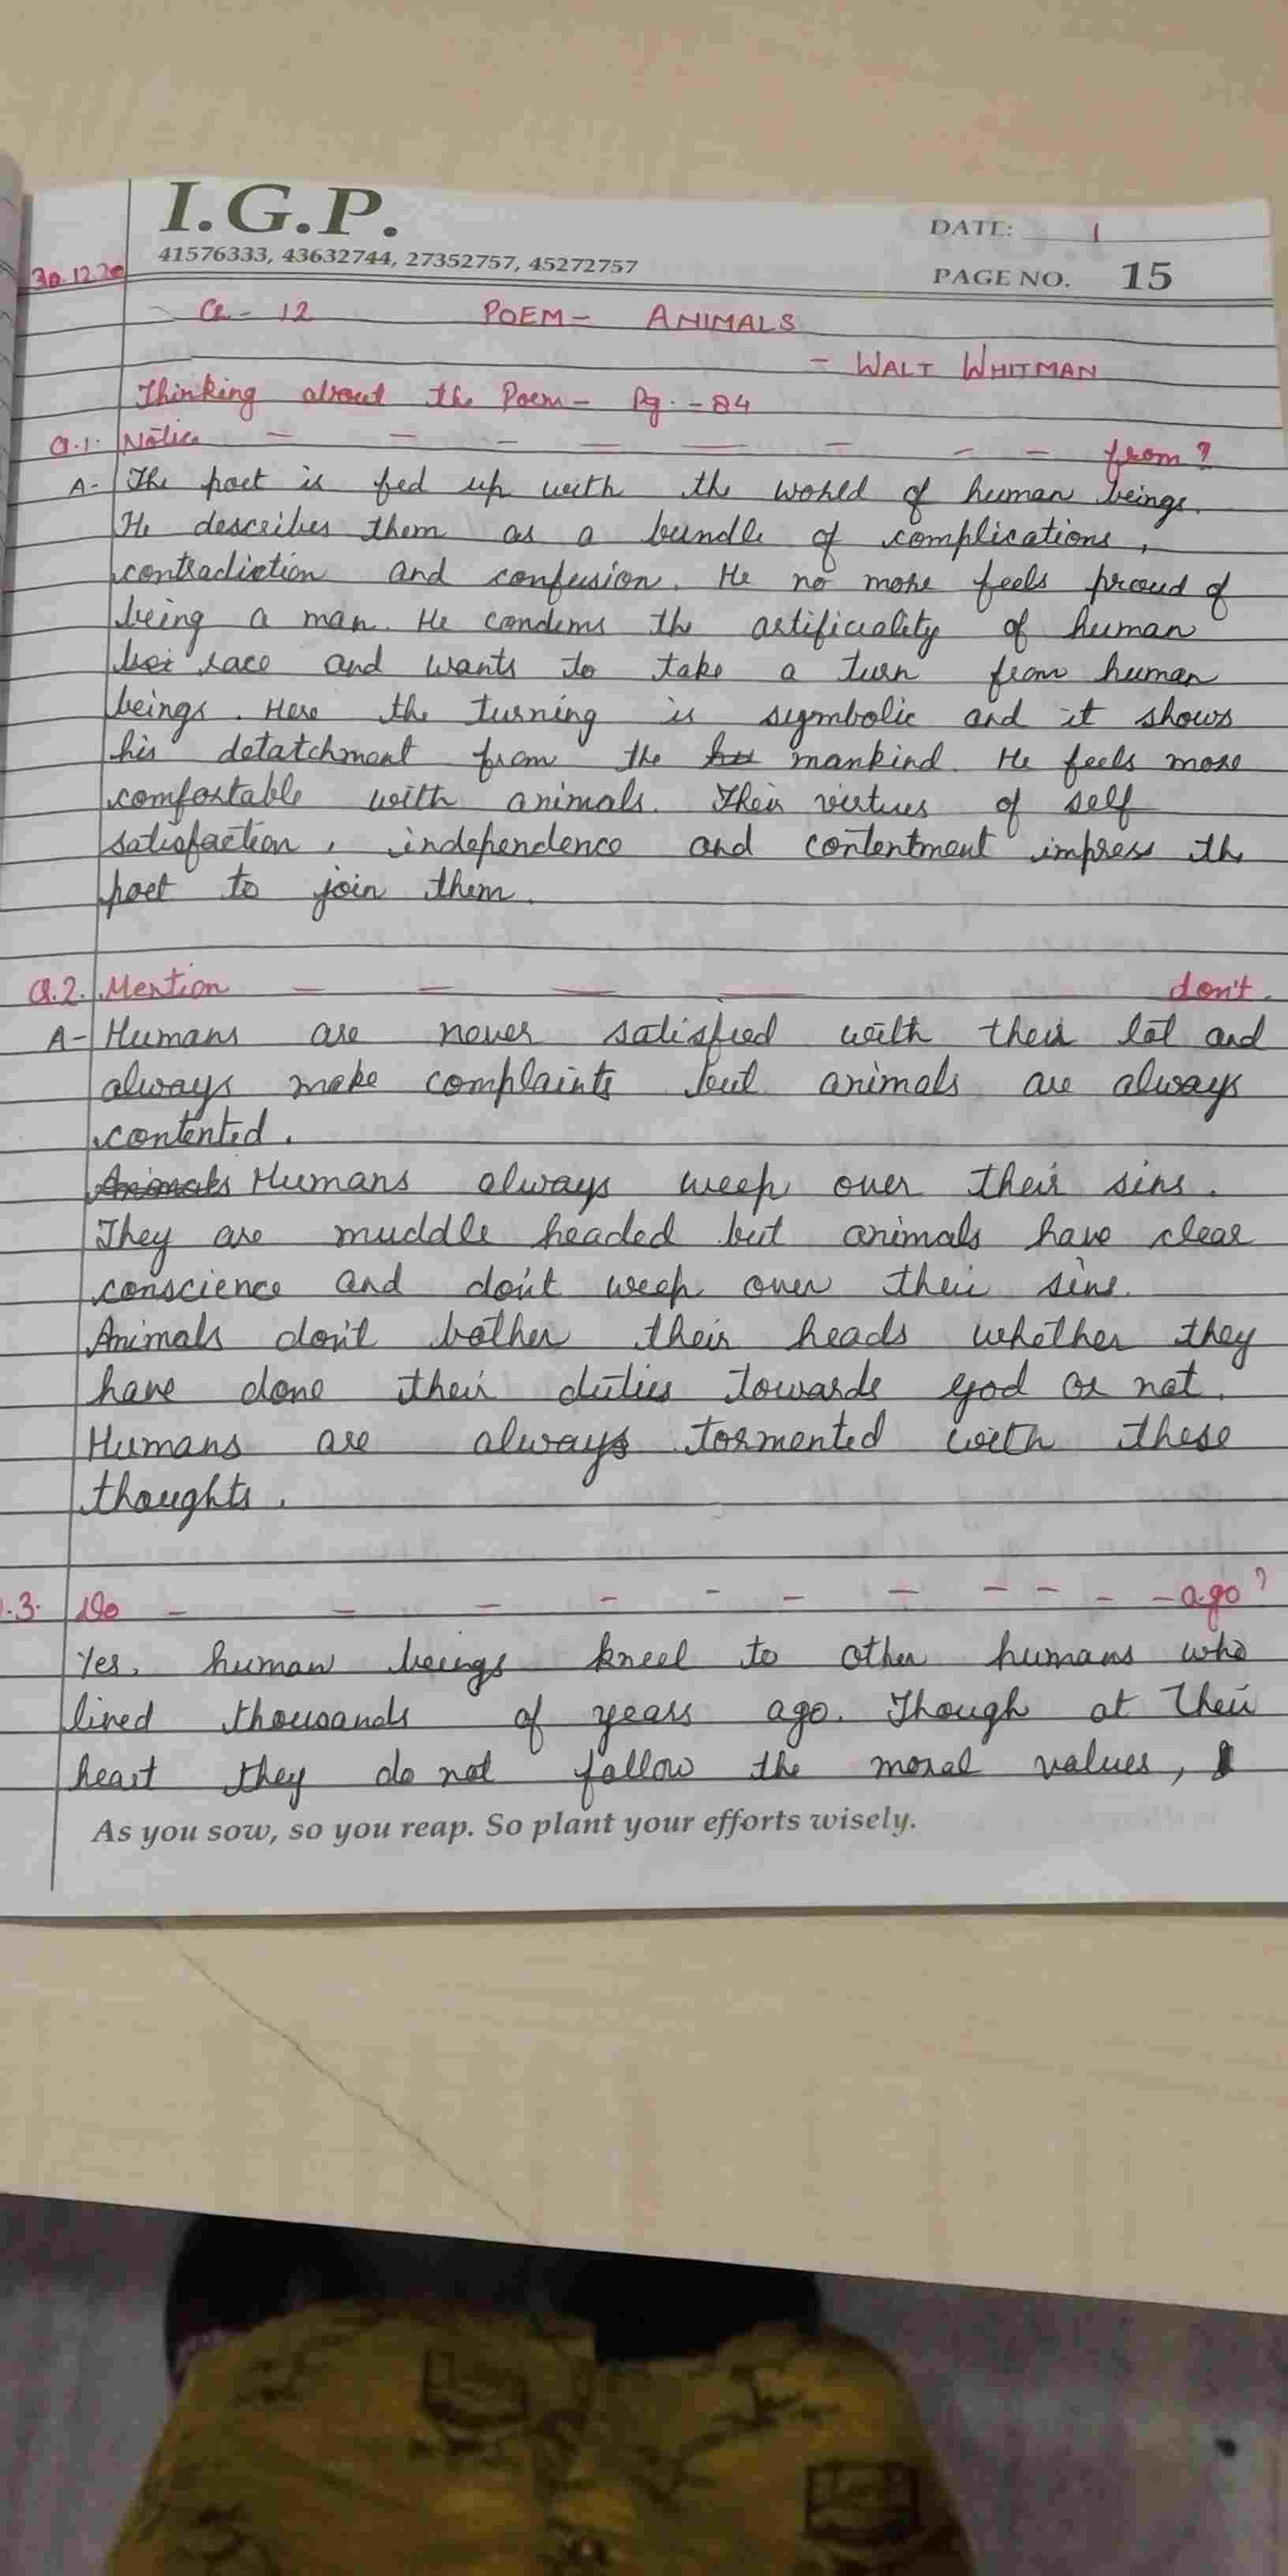 I.G.P.
41576333, 43632744, 27352757, 45272757
DATE: 1
PAGE NO. 15
30.12.20
Q - 12 POEM - ANIMALS
- WALT WHITMAN
Thinking about the Poem - Pg. - 84
Q.1. Notice - - - - - - - - from?
A- The poet is fed up with the world of human beings.
He describes them as a bundle of complications,
contradiction and confusion. He no more feels proud of
being a man. He condems the artificiality of human
race and wants to take a turn from human
beings. Here the turning is symbolic and it shows
his detatchment from the mankind. He feels more
comfortable with animals. Their virtues of self
satisfaction, independence and contentment impress the
poet to join them.
Q.2. Mention - - - - don't.
A- Humans are never satisfied with their lot and
always make complaints but animals are always
contented.
Animals Humans always weep over their sins.
They are muddle headed but animals have clear
conscience and don't weep over their sins.
Animals don't bother their heads whether they
have done their duties towards god or not.
Humans are always tormented with these
thoughts.
.3. Do - - - - - - - - - - - ago?
Yes, human beings kneel to other humans who
lived thousands of years ago. Though at their
heart they do not follow the moral values,
As you sow, so you reap. So plant your efforts wisely.